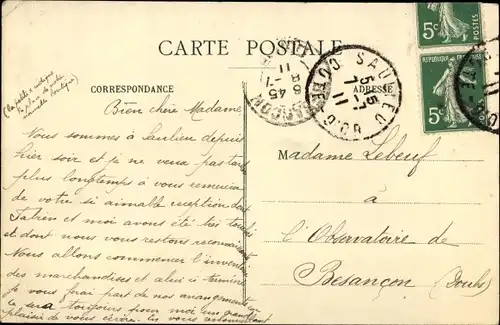 CARTE POSTALE
CORRESPONDANCE
ADRESSE
(La petite x indique
la place de notre
nouvelle boutique)
Bien chère Madame
Nous sommes à Saulieu depuis
hier soir et je ne veux pas tarder
plus longtemps à vous remercier
de votre si aimable réception dont
Fabien et moi avons été très touchés
et dont nous vous restons reconnaissants
Nous allons commencer l'inventaire
des marchandises et ainsi terminé
je vous ferai part de nos arrangements
ce sera toujours pour moi un grand
plaisir de vous écrire. En vous
Madame Lebeuf
à
l'Observatoire de
Besançon (Doubs)
SAULIEU
5 15
7-1
11
CÔTE-D'OR
6 45
8 -1
11
5c
RÉPUBLIQUE FRANÇAISE
5c